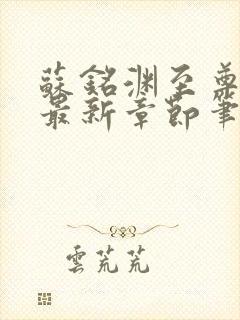 蘇銘渊至尊
最新章節筆
雲芃芃